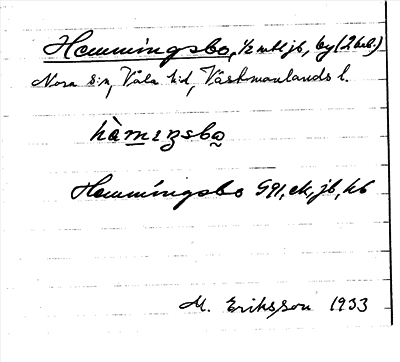 Hemmingsbo, 1/2 mtl jb, by (2 brl.)
Nora sn, Våla hd, Västmanlands l.
hàmıŋsbo
Hemmingsbo G91, ek, jb, kb
M. Eriksson 1933